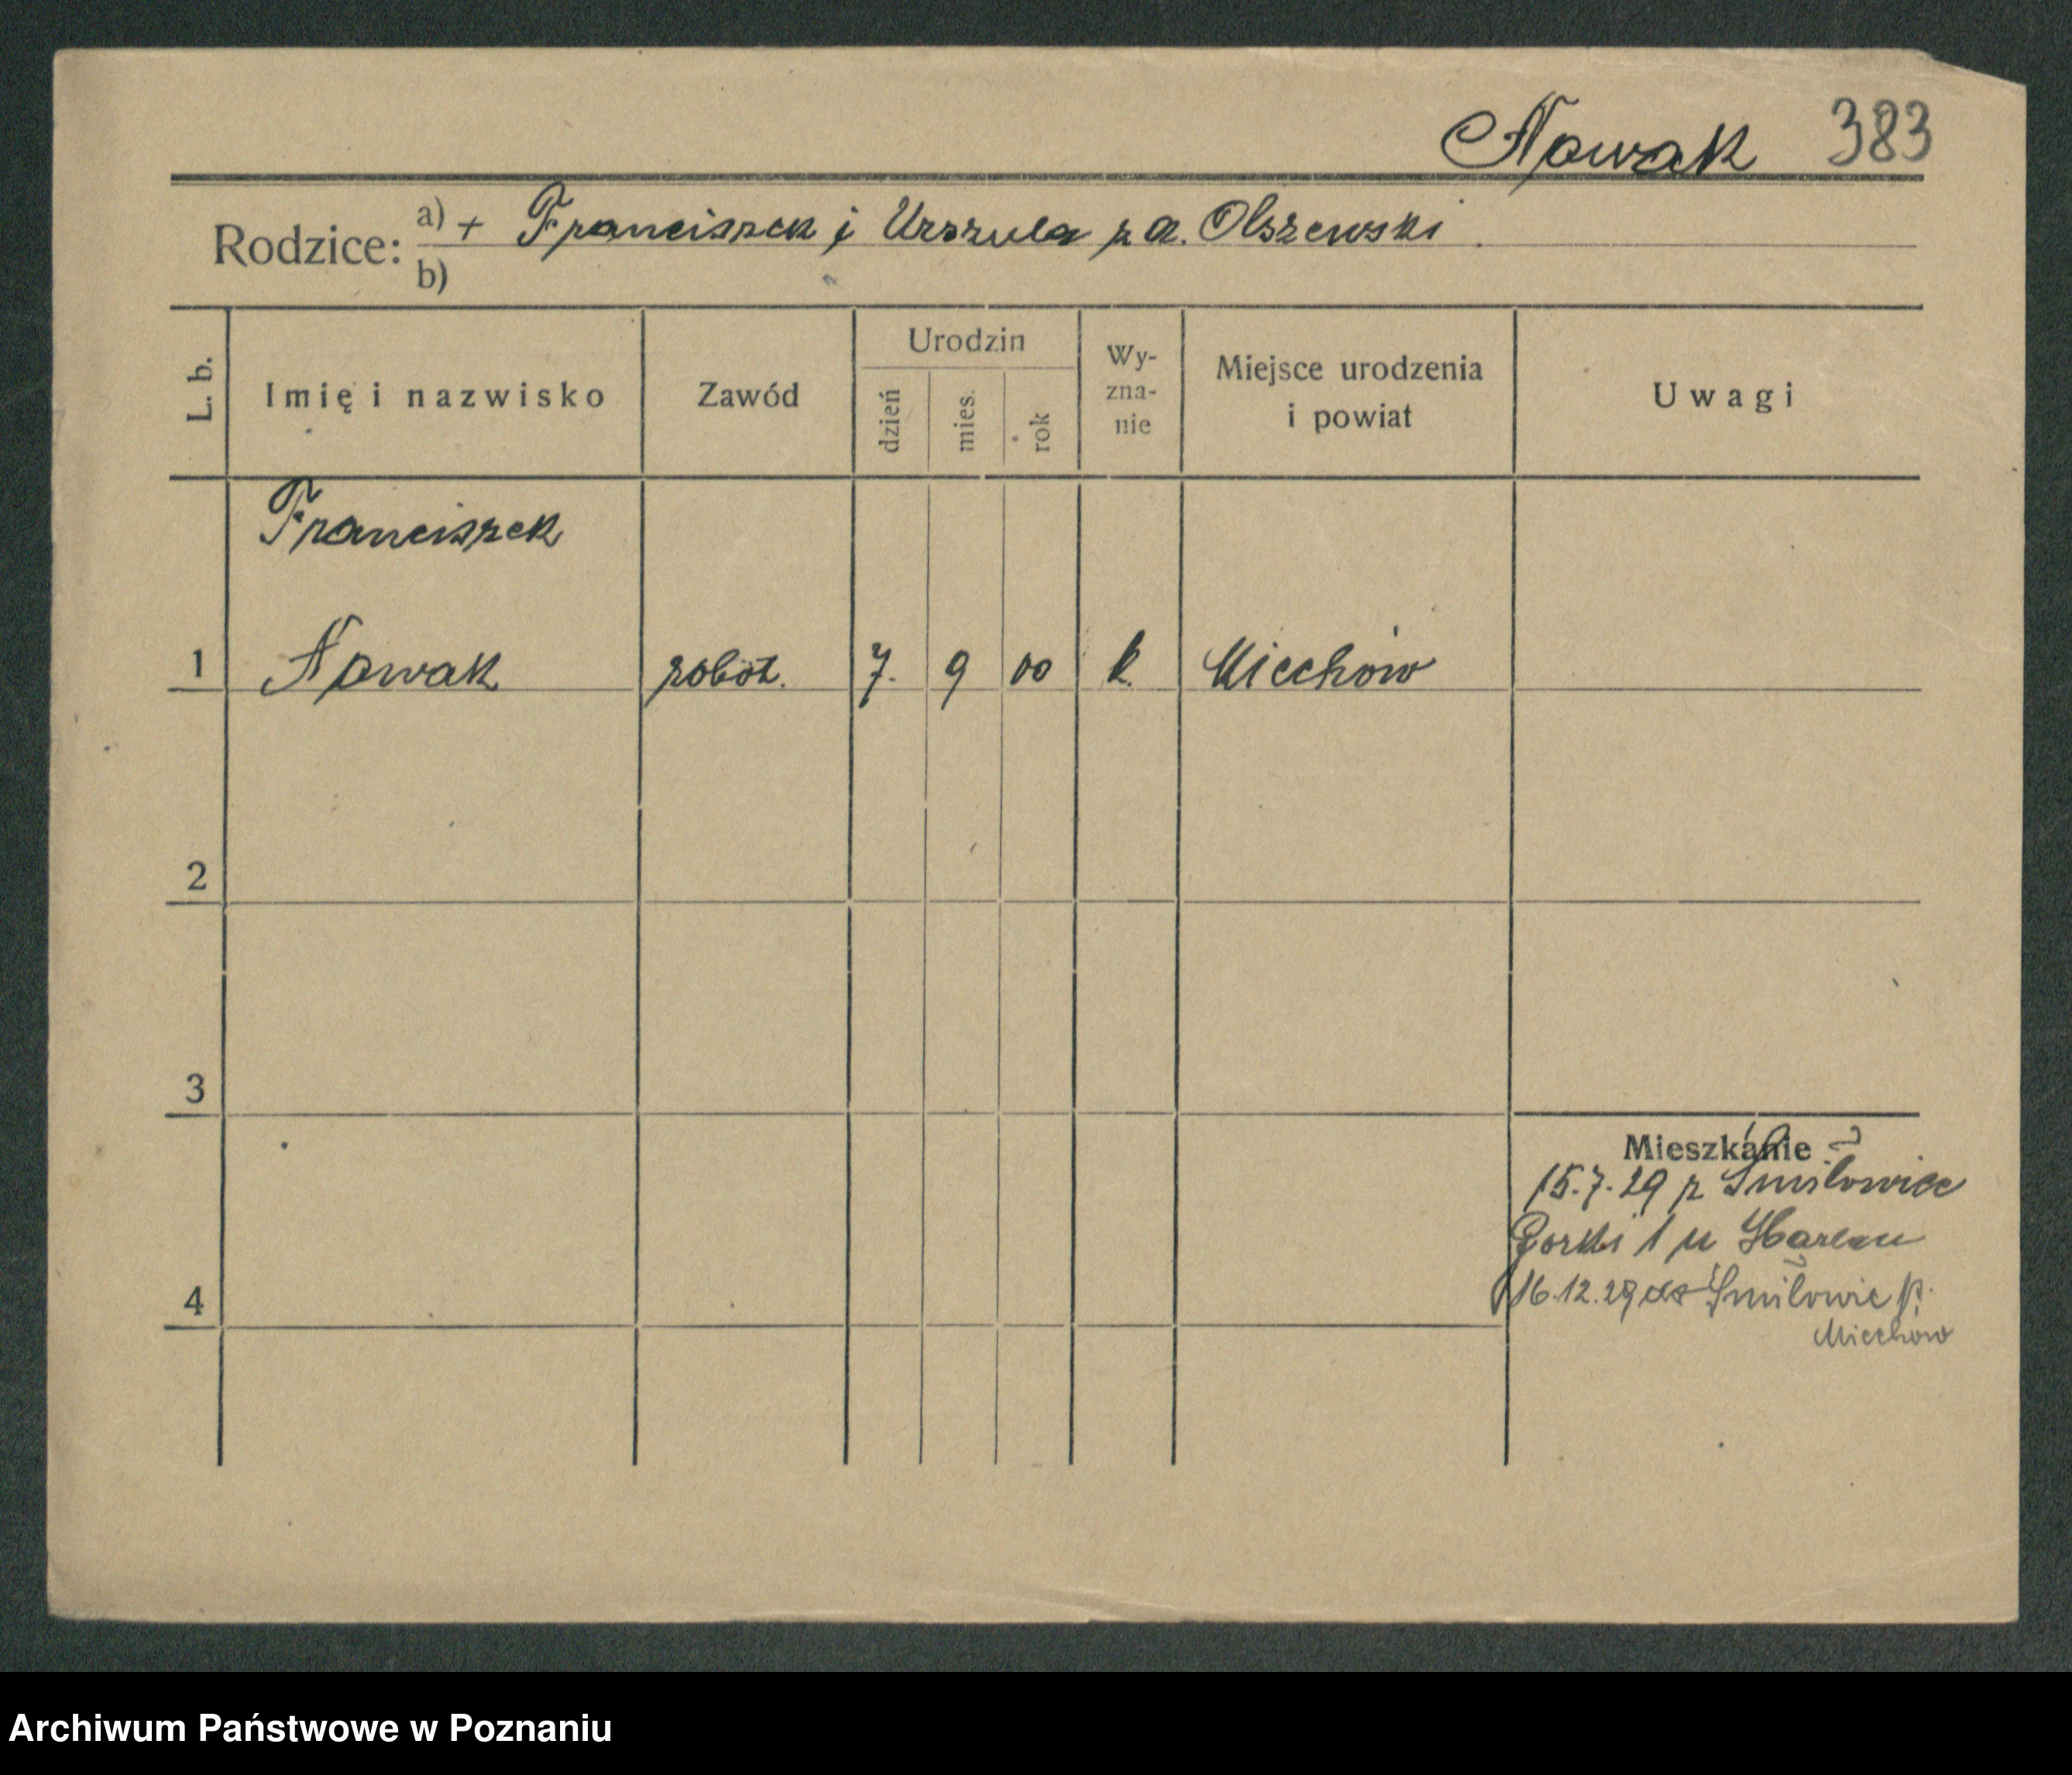 Nowak 383
Rodzice: a) + Franciszek i Urszula z d. Olszewski
b)
L. b. Imię i nazwisko Zawód Urodzin dzień mies. rok Wyzna-nie Miejsce urodzenia i powiat Uwagi
Franciszek
1 Nowak robot. 7. 9 00 k. Miechów
2
3
Mieszkanie
15.7.29 z Smiłowice
Gorki 1 u
4 16.12.29 do Smiłowic p.
Miechów
Archiwum Państwowe w Poznaniu